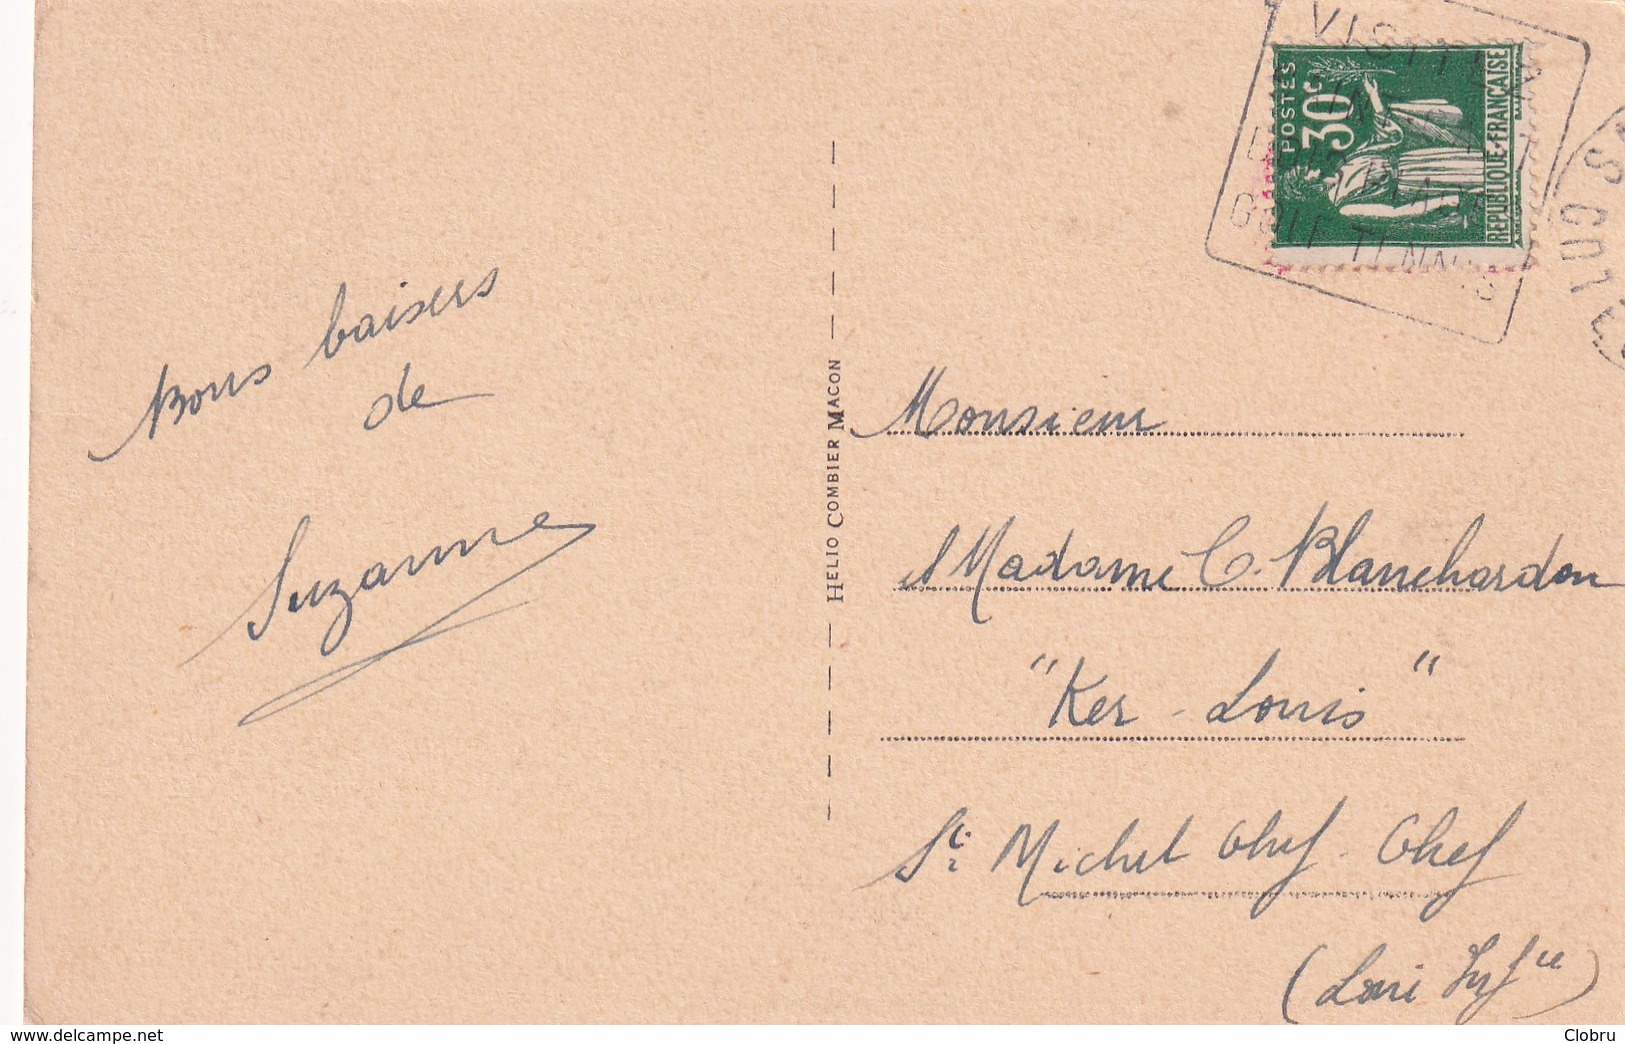 VISITEZ
GOLF TENNIS
POSTES
30c
REPUBLIQUE-FRANÇAISE
Bons baisers
de
Suzanne
HELIO COMBIER MACON
Monsieur
et Madame C. Blanchardon
"Ker-Louis"
St Michel Chef-Chef
(Loire Infre)
delcampe.net
Clobru